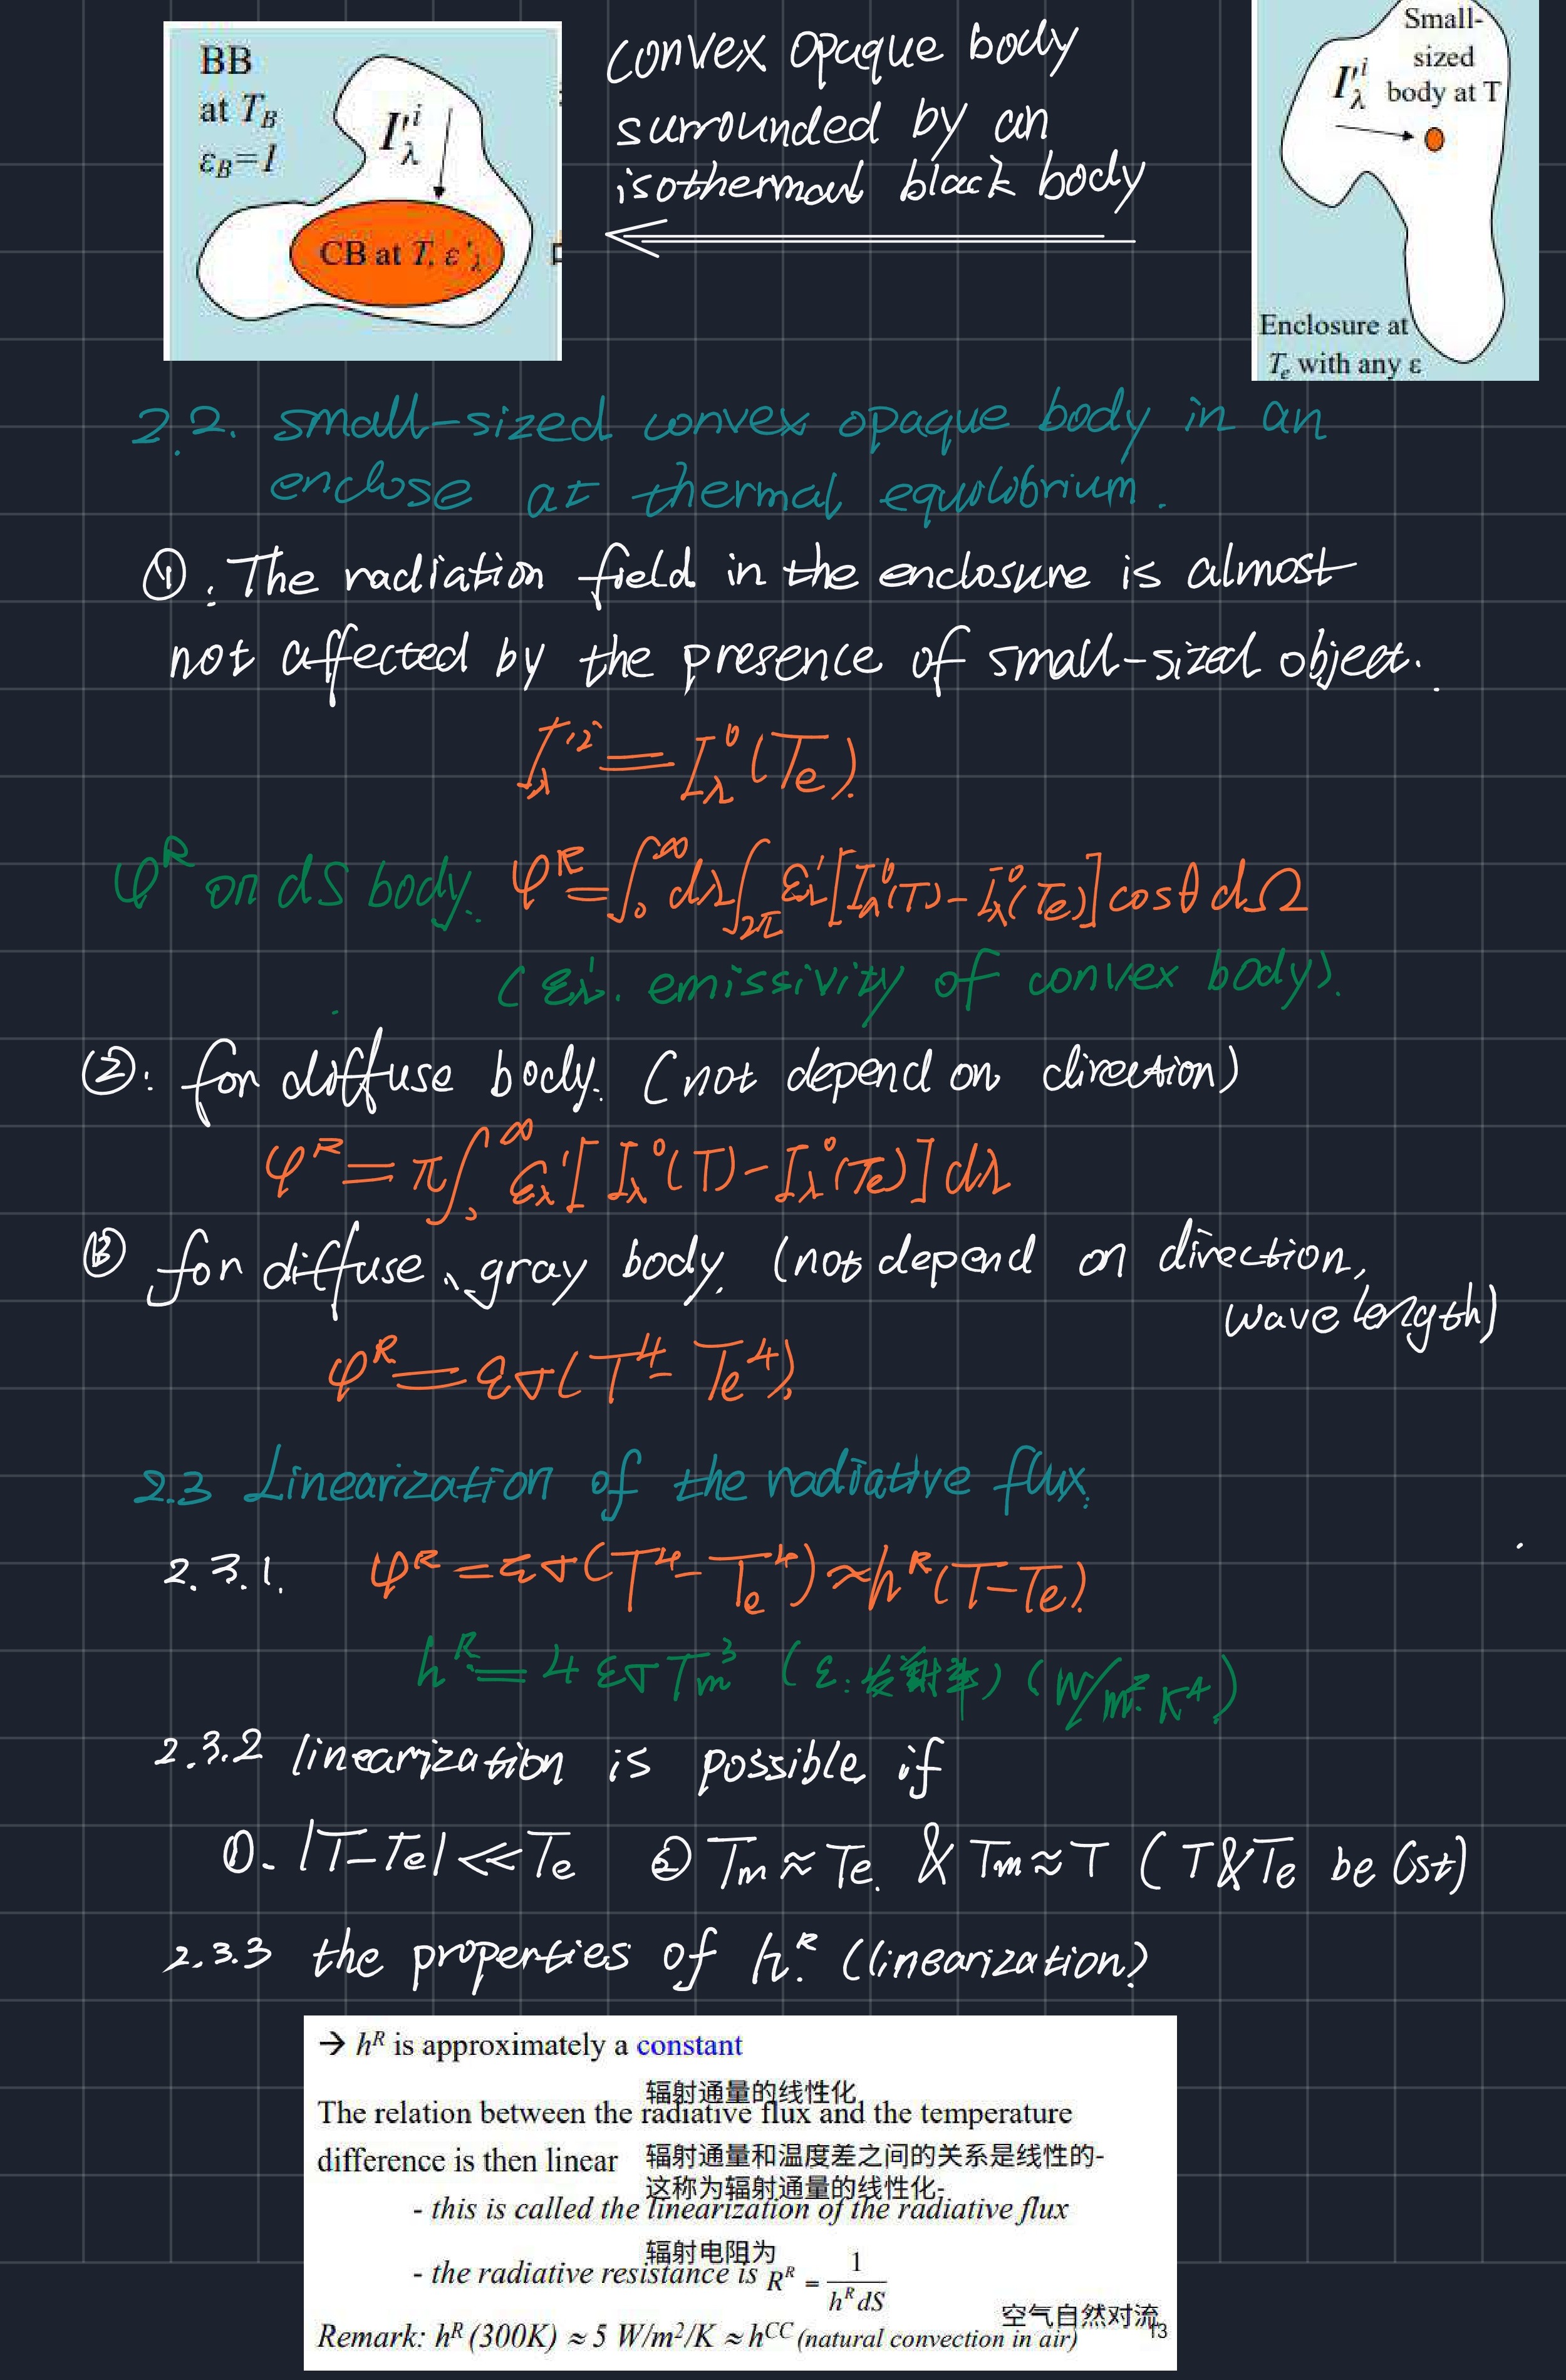 BB
at T_B
ε_B=1
I'^i_λ
CB at T, ε'_λ
convex opaque body
surrounded by an
isothermal black body
Small-
sized
body at T
I'^i_λ
Enclosure at
T_e with any ε
2.2. small-sized convex opaque body in an
enclose at thermal equilobrium.
①. The radiation field in the enclosure is almost
not affected by the presence of small-sized object.
I'^i_λ = I^0_λ(Te).
φ^R on dS body. φ^R = ∫_0^∞ dλ ∫_2π ε'_λ [I^0_λ(T) - I^0_λ(Te)] cosθ dΩ
(ε'_λ. emissivity of convex body).
②. for diffuse body. (not depend on direction)
φ^R = π∫_0^∞ ε'_λ [I^0_λ(T) - I^0_λ(Te)] dλ
③ for diffuse、gray body. (not depend on direction,
wave length)
φ^R = εσ(T^4 - Te^4).
2.3 Linearization of the radiative flux.
2.3.1. φ^R = εσ(T^4 - Te^4) ≈ h^R(T - Te).
h^R = 4εσTm^3 (ε:发射率) (W/m².K^4)
2.3.2 linearization is possible if
①. |T-Te| ≪ Te ② Tm ≈ Te. & Tm ≈ T (T&Te be Cst)
2.3.3 the properties of h^R. (linearization?)
→ h^R is approximately a constant
辐射通量的线性化
The relation between the radiative flux and the temperature
difference is then linear 辐射通量和温度差之间的关系是线性的-
这称为辐射通量的线性化-
- this is called the linearization of the radiative flux
辐射电阻为
- the radiative resistance is R^R = 1/(h^R dS)
空气自然对流
Remark: h^R (300K) ≈ 5 W/m²/K ≈ h^CC (natural convection in air) 13